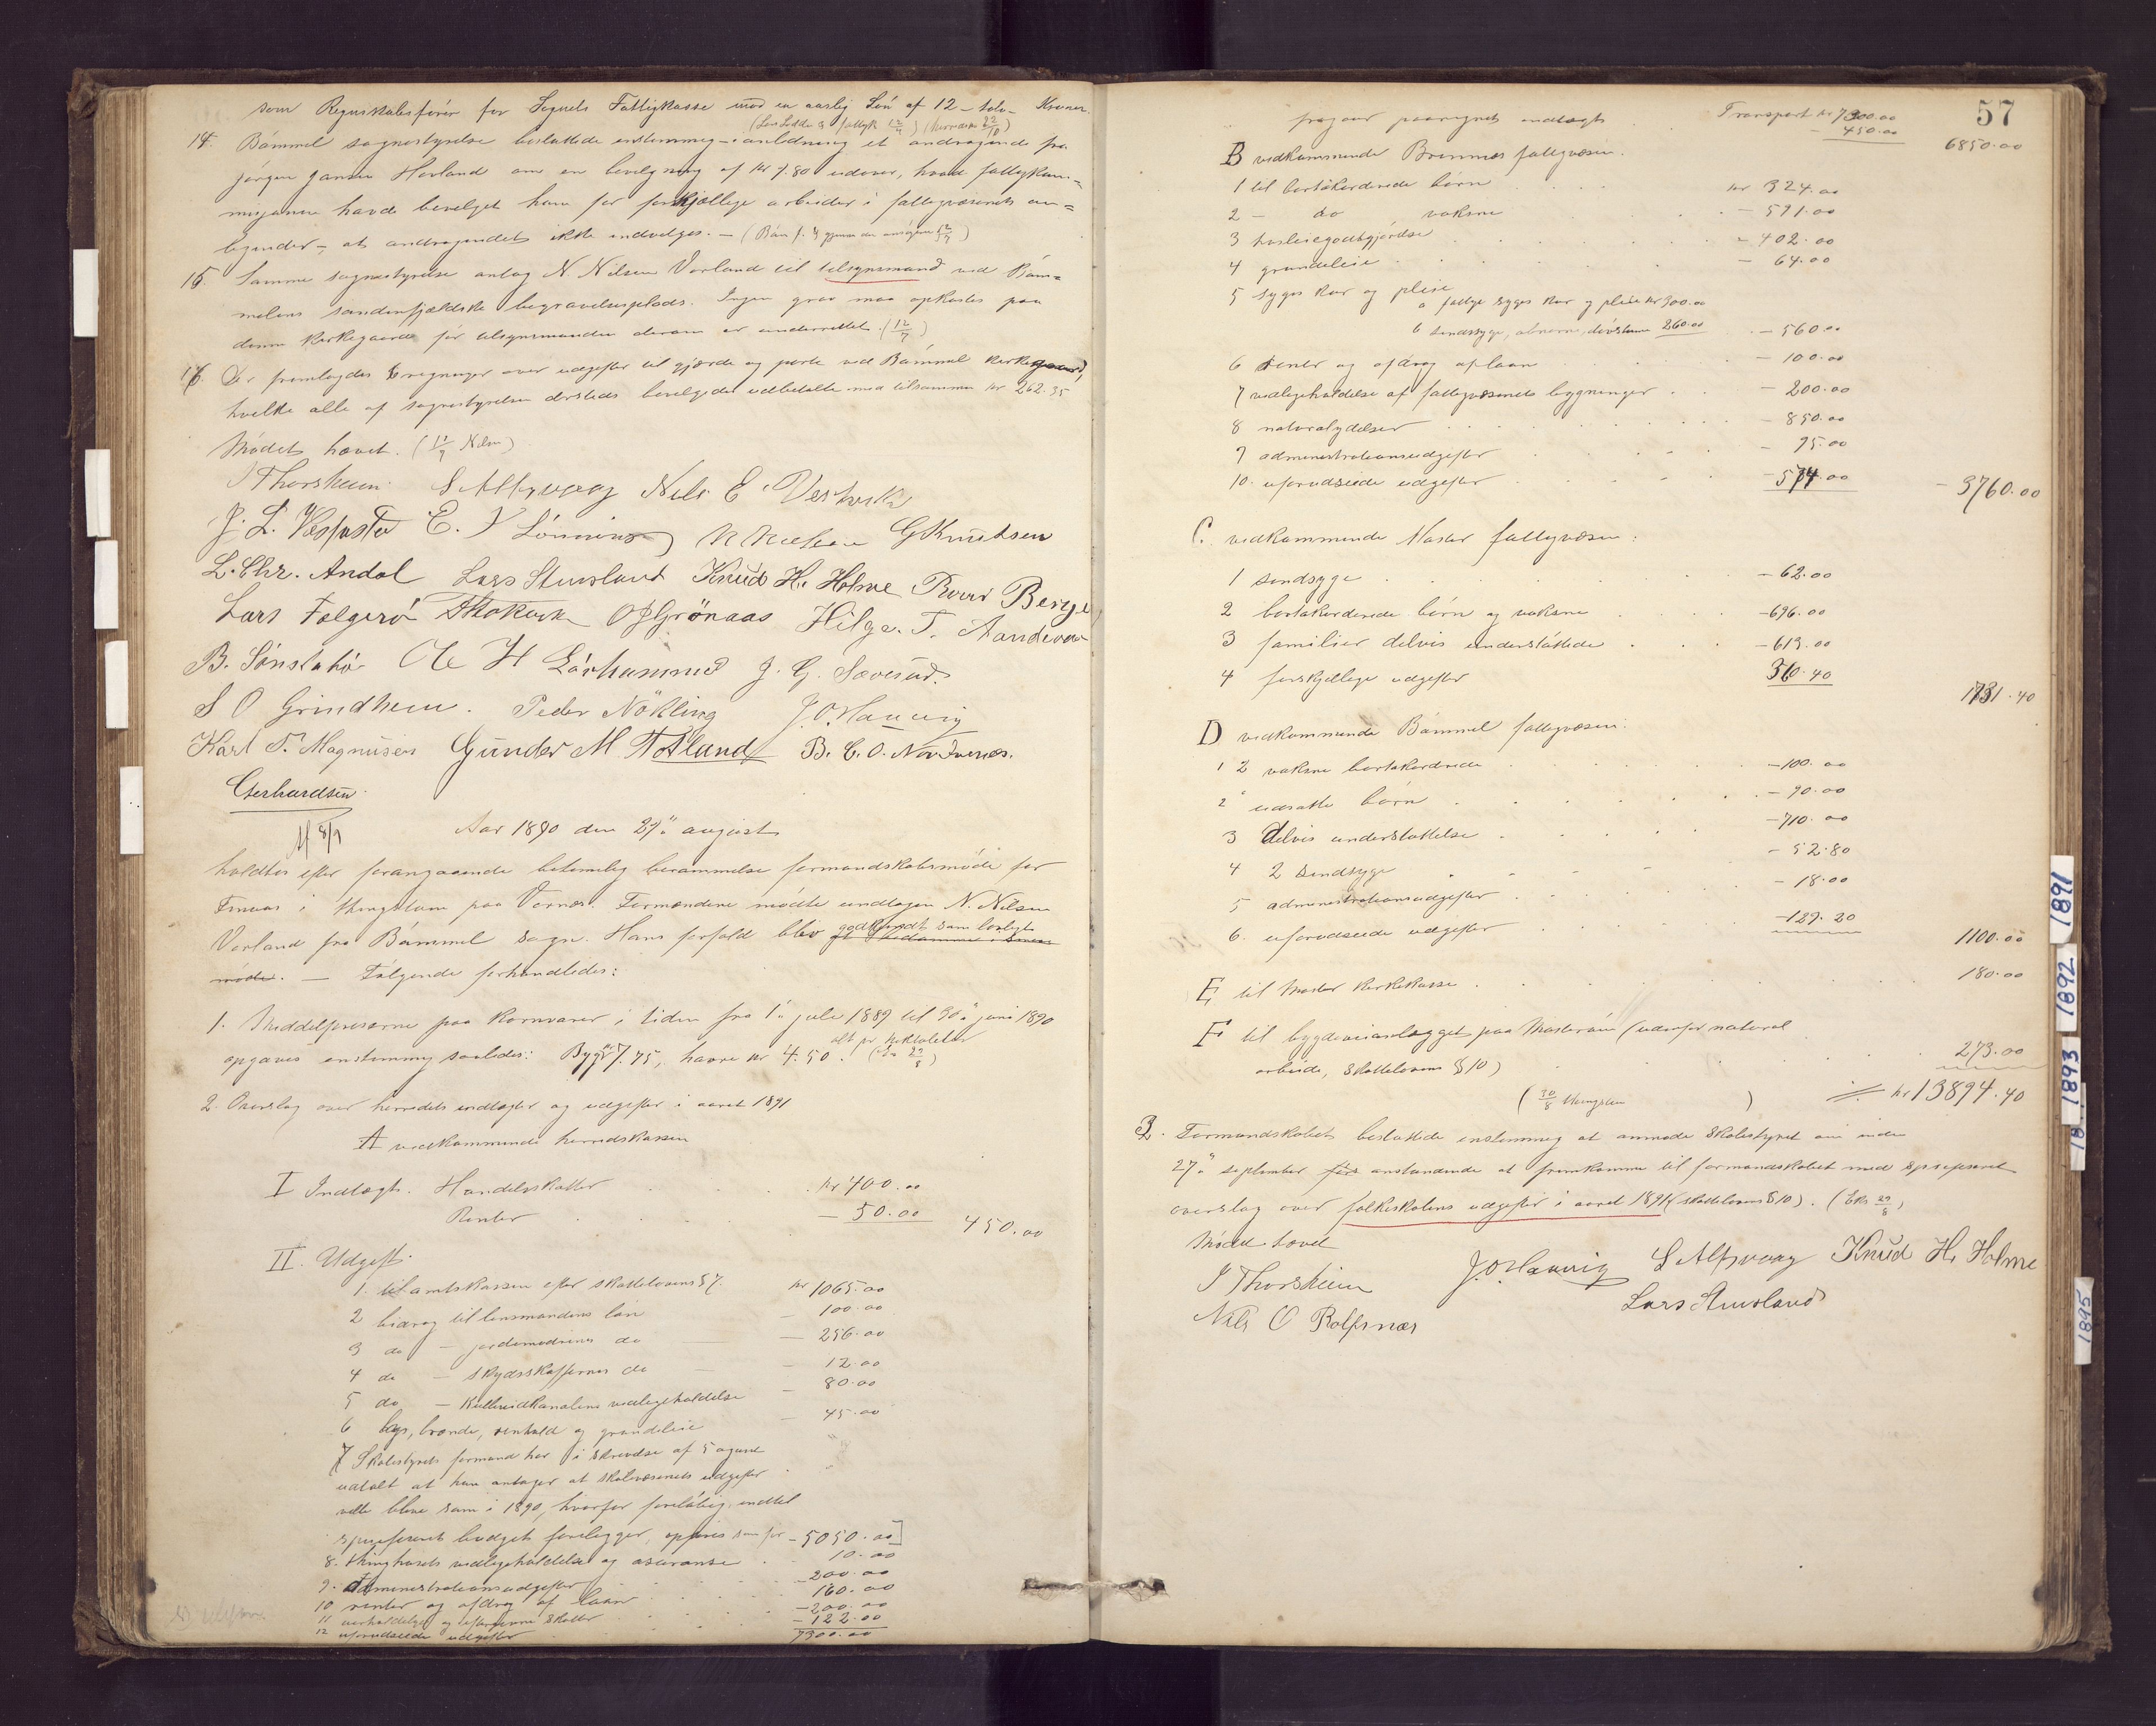 som Regnskabsfører for Sognets Fattigkasse mod en aarlig Løn af 12 - tolv - Kroner.
14. Bømmel sognestyrelse besluttede enstemmig - i anledning et andragende fra
Jørgen Jansen Hovland om en bevilgning af kr 7.80 udover, hvad fattigkom-
misjonen havde bevilget ham for forskjællige arbeider i fattigvæsenets an-
legender -, at andragendet ikke indvilges. -
15. Samme sognestyrelse antog N Nilsen Vorland til tilsynsmand ved Bøm-
melens søndenfjældske begravelsesplads. Ingen grav maa opkastes paa
denne kirkegaard før tilsynsmanden derom er underrettet. (12/9)
16. Der fremlagdes 6 regninger over udgifter til gjærde og porte ved Bømmel kirkegaard,
hvilke alle af sognestyrelsen dersteds bevilgedes udbetalte med tilsammen kr 262.35
Mødet hævet.
J Thorsheim S Alfsvaag Nils E. Vestvik
J. L. Vespestad E. J Lønning N Nielsen G Knutsen
L. Chr. Andal Lars Stursland Knud H. Holme Roar Berge
Lars Folgerø O J Grønaas Helge. T.
B. Sønstabø Ole H Lørhammer J. G. Sæverud.
S O Grindheim. Peder Nøkling J. O. Hauvig
Karl T. Magnusen Gunder M. Totland B. C. O.
Gerhardsen.
Aar 1890 den 27de august
holdtes efter forangaaende betimelig berammelse formandskabsmøde for
Finnaas i thingstuen paa Vornæs. Formændene mødte undtagen N. Nilsen
Vorland fra Bømmel sogn. Hans forfald blev godkjendt som lovligt
møde. - Følgende forhandledes:
1. Middelpriserne paa kornvarer i tiden fra 1ste juli 1889 til 30te juni 1890
opgaves enstemmig saaledes: Byg kr 7.75, havre kr 4.50. alt pr hektoliter
2. Overslag over herredets indtægter og udgifter i aaret 1891
A vedkommende herredskassen
I Indtægt. Handelsskatter kr 400.00
Renter - 50.00 450.00
II. Udgift.
1. til amtskassen efter skattelovens § 7. kr 1065.00
2 bidrag til lensmandens løn - 100.00
3 do - jordemødrenes do - 256.00
4 do - skydsskaffernes do - 12.00
5 do - Kulleseidkanalens vedligeholdelse - 80.00
6 lys, brænde, renhold og grundeleie - 45.00
7 Skolestyrets formand har i skrivelse af 5 august
udtalt at han antager at skolevæsenets udgifter
vilde blive som i 1890, hvorfor foreløbig indtil
specificeret budget foreligger, opføres som før - 5050.00
8. thinghusets vedligeholdelse og asuranse 10.00
9. Administrationsudgifter - 200.00
10 renter og afdrag af laan 160.00
11 - 200.00
12 uforudseede udgifter - 122.00
7300.00
57
fragaar paaregnet indtægt Transport kr 7300.00
- 450.00 6850.00
B vedkommende Bremnes fattigvæsen.
1 til bortakkorderede børn kr 324.00
2 - do voksne - 591.00
3 husleiegodtgjørelse - 402.00
4 grundeleie - 64.00
5 syges kur og pleie
a fattige syges kur og pleie kr 300.00
b sindssyge, abnorme, døvstumme 260.00 - 560.00
6 renter og afdrag af laan - 100.00
7 vedligeholdelse af fattigvæsenets bygninger - 200.00
8 naturalydelser - 850.00
9 administrationsudgifter - 95.00
10. uforudseede udgifter - 574.00 - 3760.00
C. vedkommende Moster fattigvæsen:
1 sindsyge - 62.00
2 bortakorderede børn og voksne - 696.00
3 familier delvis understøttede - 613.00
4 forskjællige udgifter 360.40 1731.40
D vedkommende Bømmel fattigvæsen:
1 2 voksne bortakorderede - 100.00
2 udsatte børn - 90.00
3 delvis understøttelse - 710.00
4 2 sindsyge - 52.80
5 administrationsudgifter - 18.00
6. uforudseede udgifter - 129.20 1100.00
E til Moster kirkekasse 180.00
F til bygdeveianlægget paa Mosterøen (udenfor natural
arbeide, skattelovens § 10) 273.00
kr 13894.40
3. Formandskabet besluttede enstemmig at anmode skolestyret om inden
27de september førstkommende at fremkomme til formandskabet med specificeret
overslag over folkeskolens udgifter i aaret 1891 (skattelovens § 10).
Mødet hævet
J Thorsheim J. O. Hauvig S Alfsvaag Knud H. Holme
Nils O Rolfsnes Lars Stursland
1891
1892
1893
1895